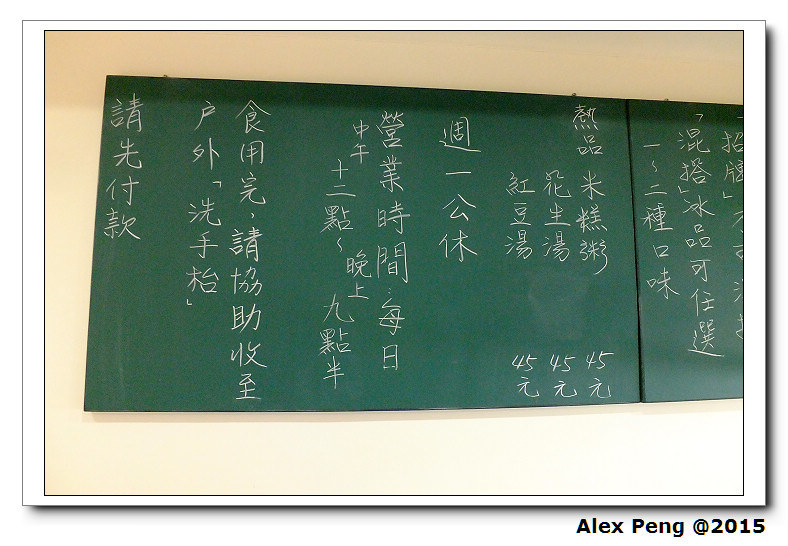 「混搭」冰品可任選
一~二種口味
熱品 米糕粥 45元
花生湯 45元
紅豆湯 45元
週一公休
營業時間:每日
中午十二點~晚上九點半
食用完,請協助收至
戶外「洗手枱」
請先付款
Alex Peng @2015